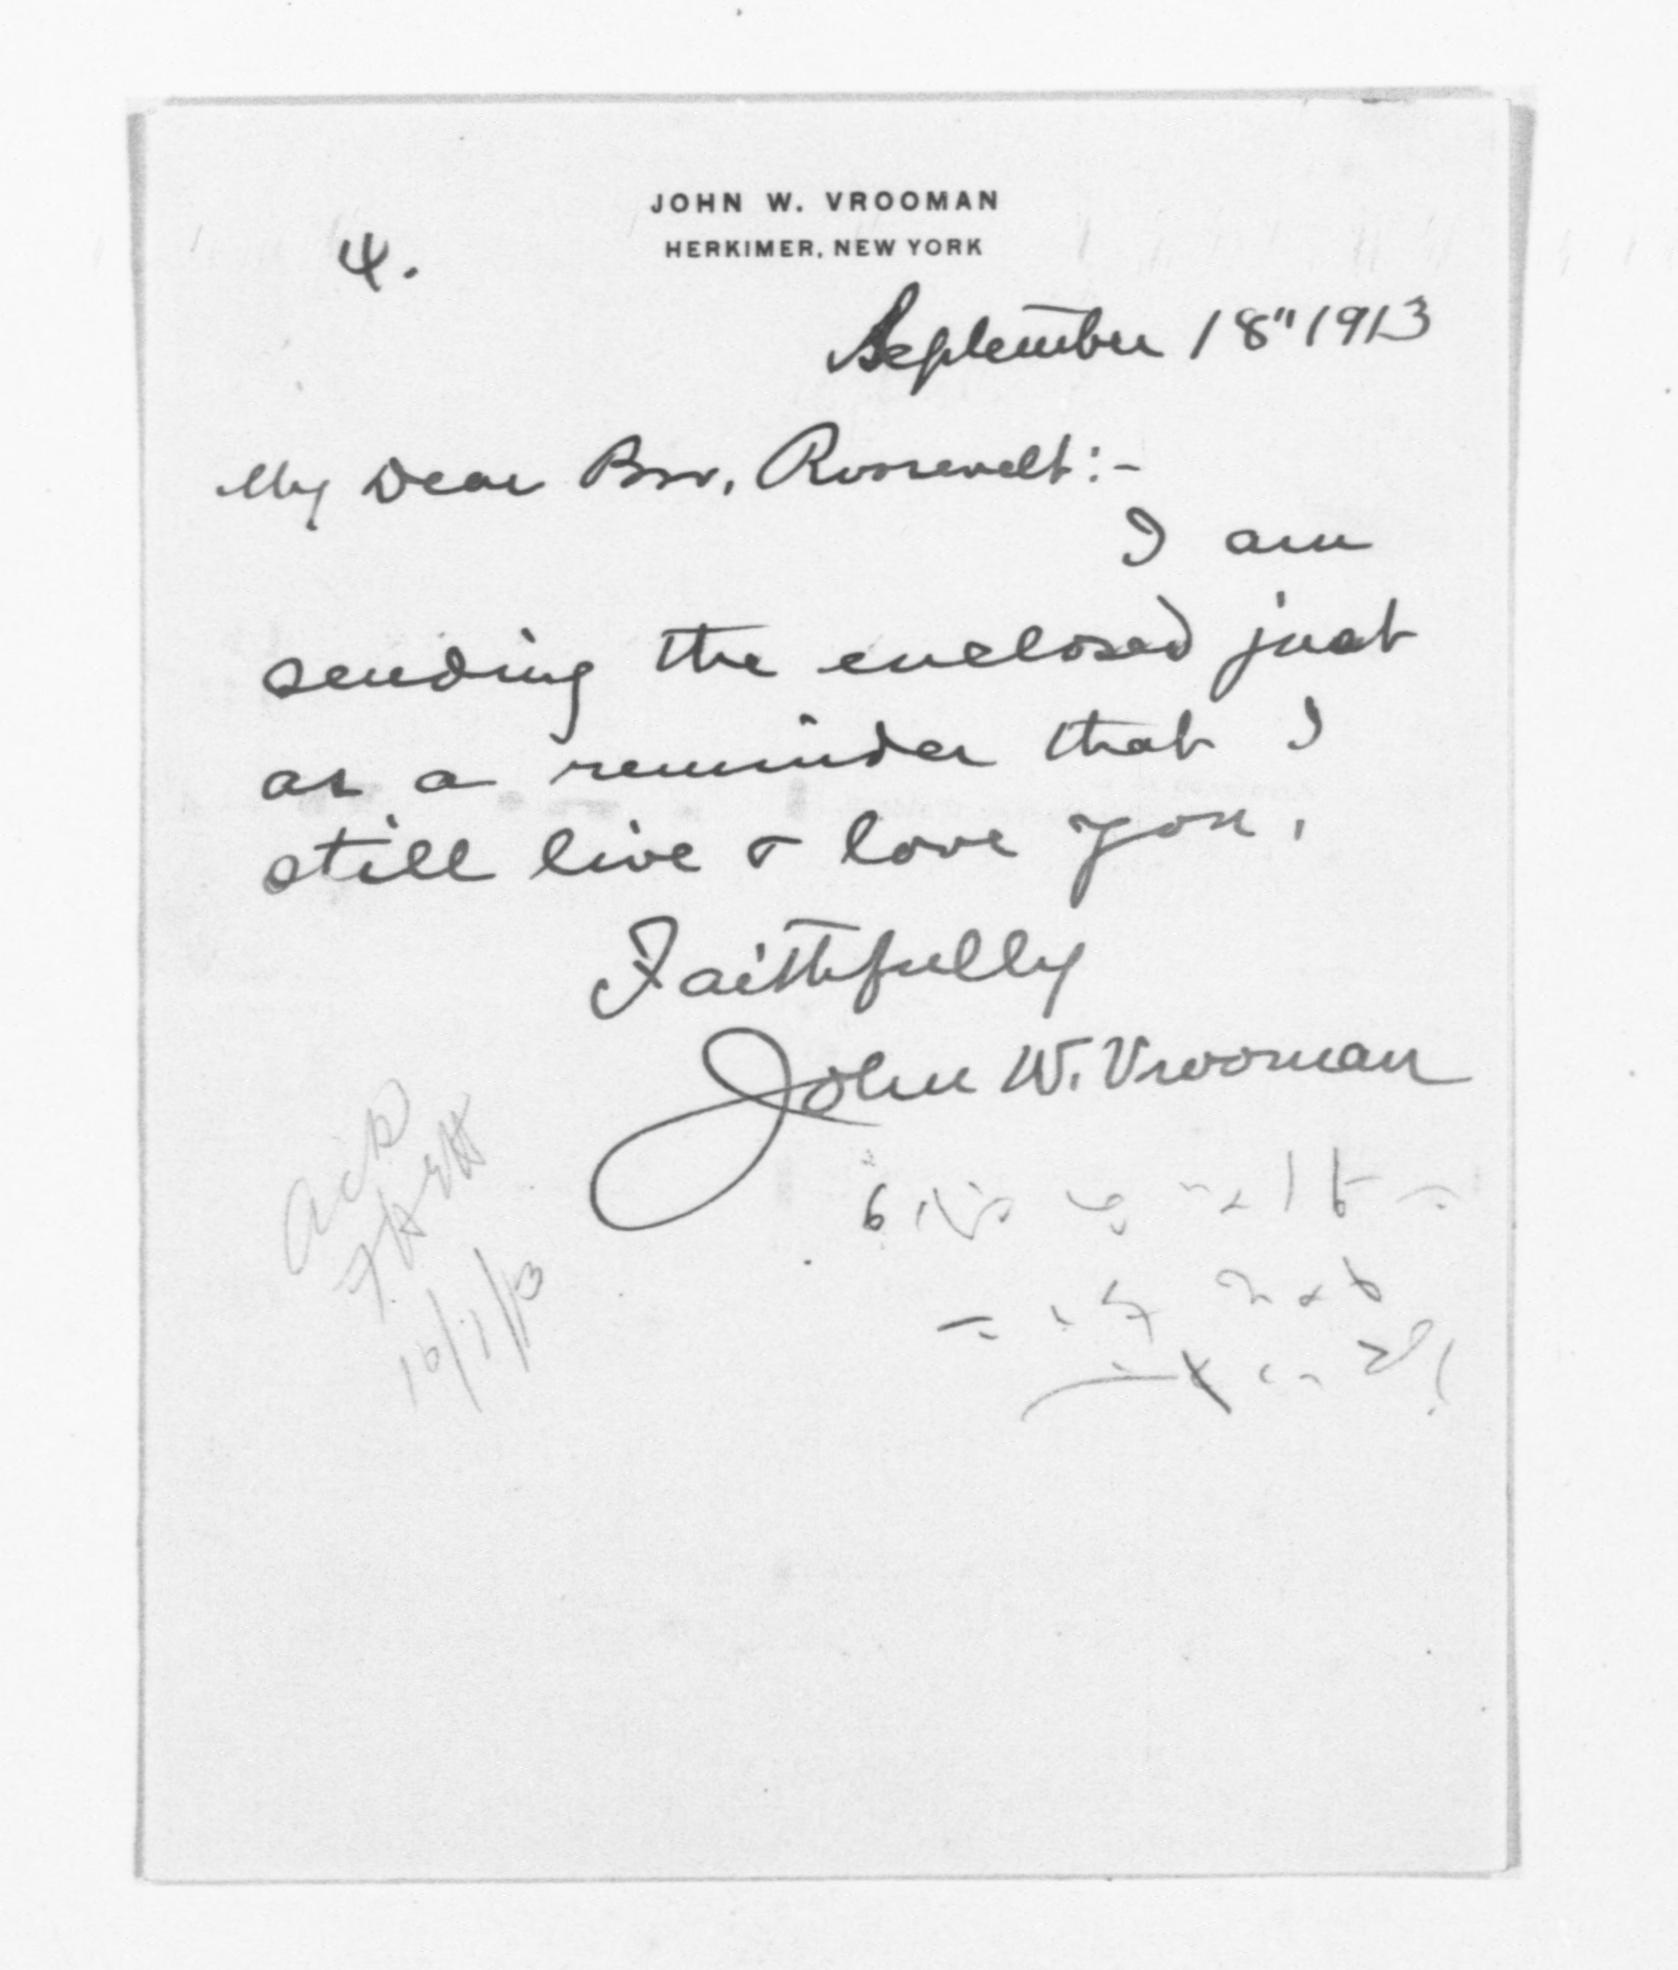 JOHN W. VROOMAN
HERKIMER, NEW YORK
4.
September 18" 1913
My Dear Bro. Roosevelt:-
I am
sending the enclosed just
as a reminder that I
still live & love you.
Faithfully
John W. Vrooman
Ack
10/1/13